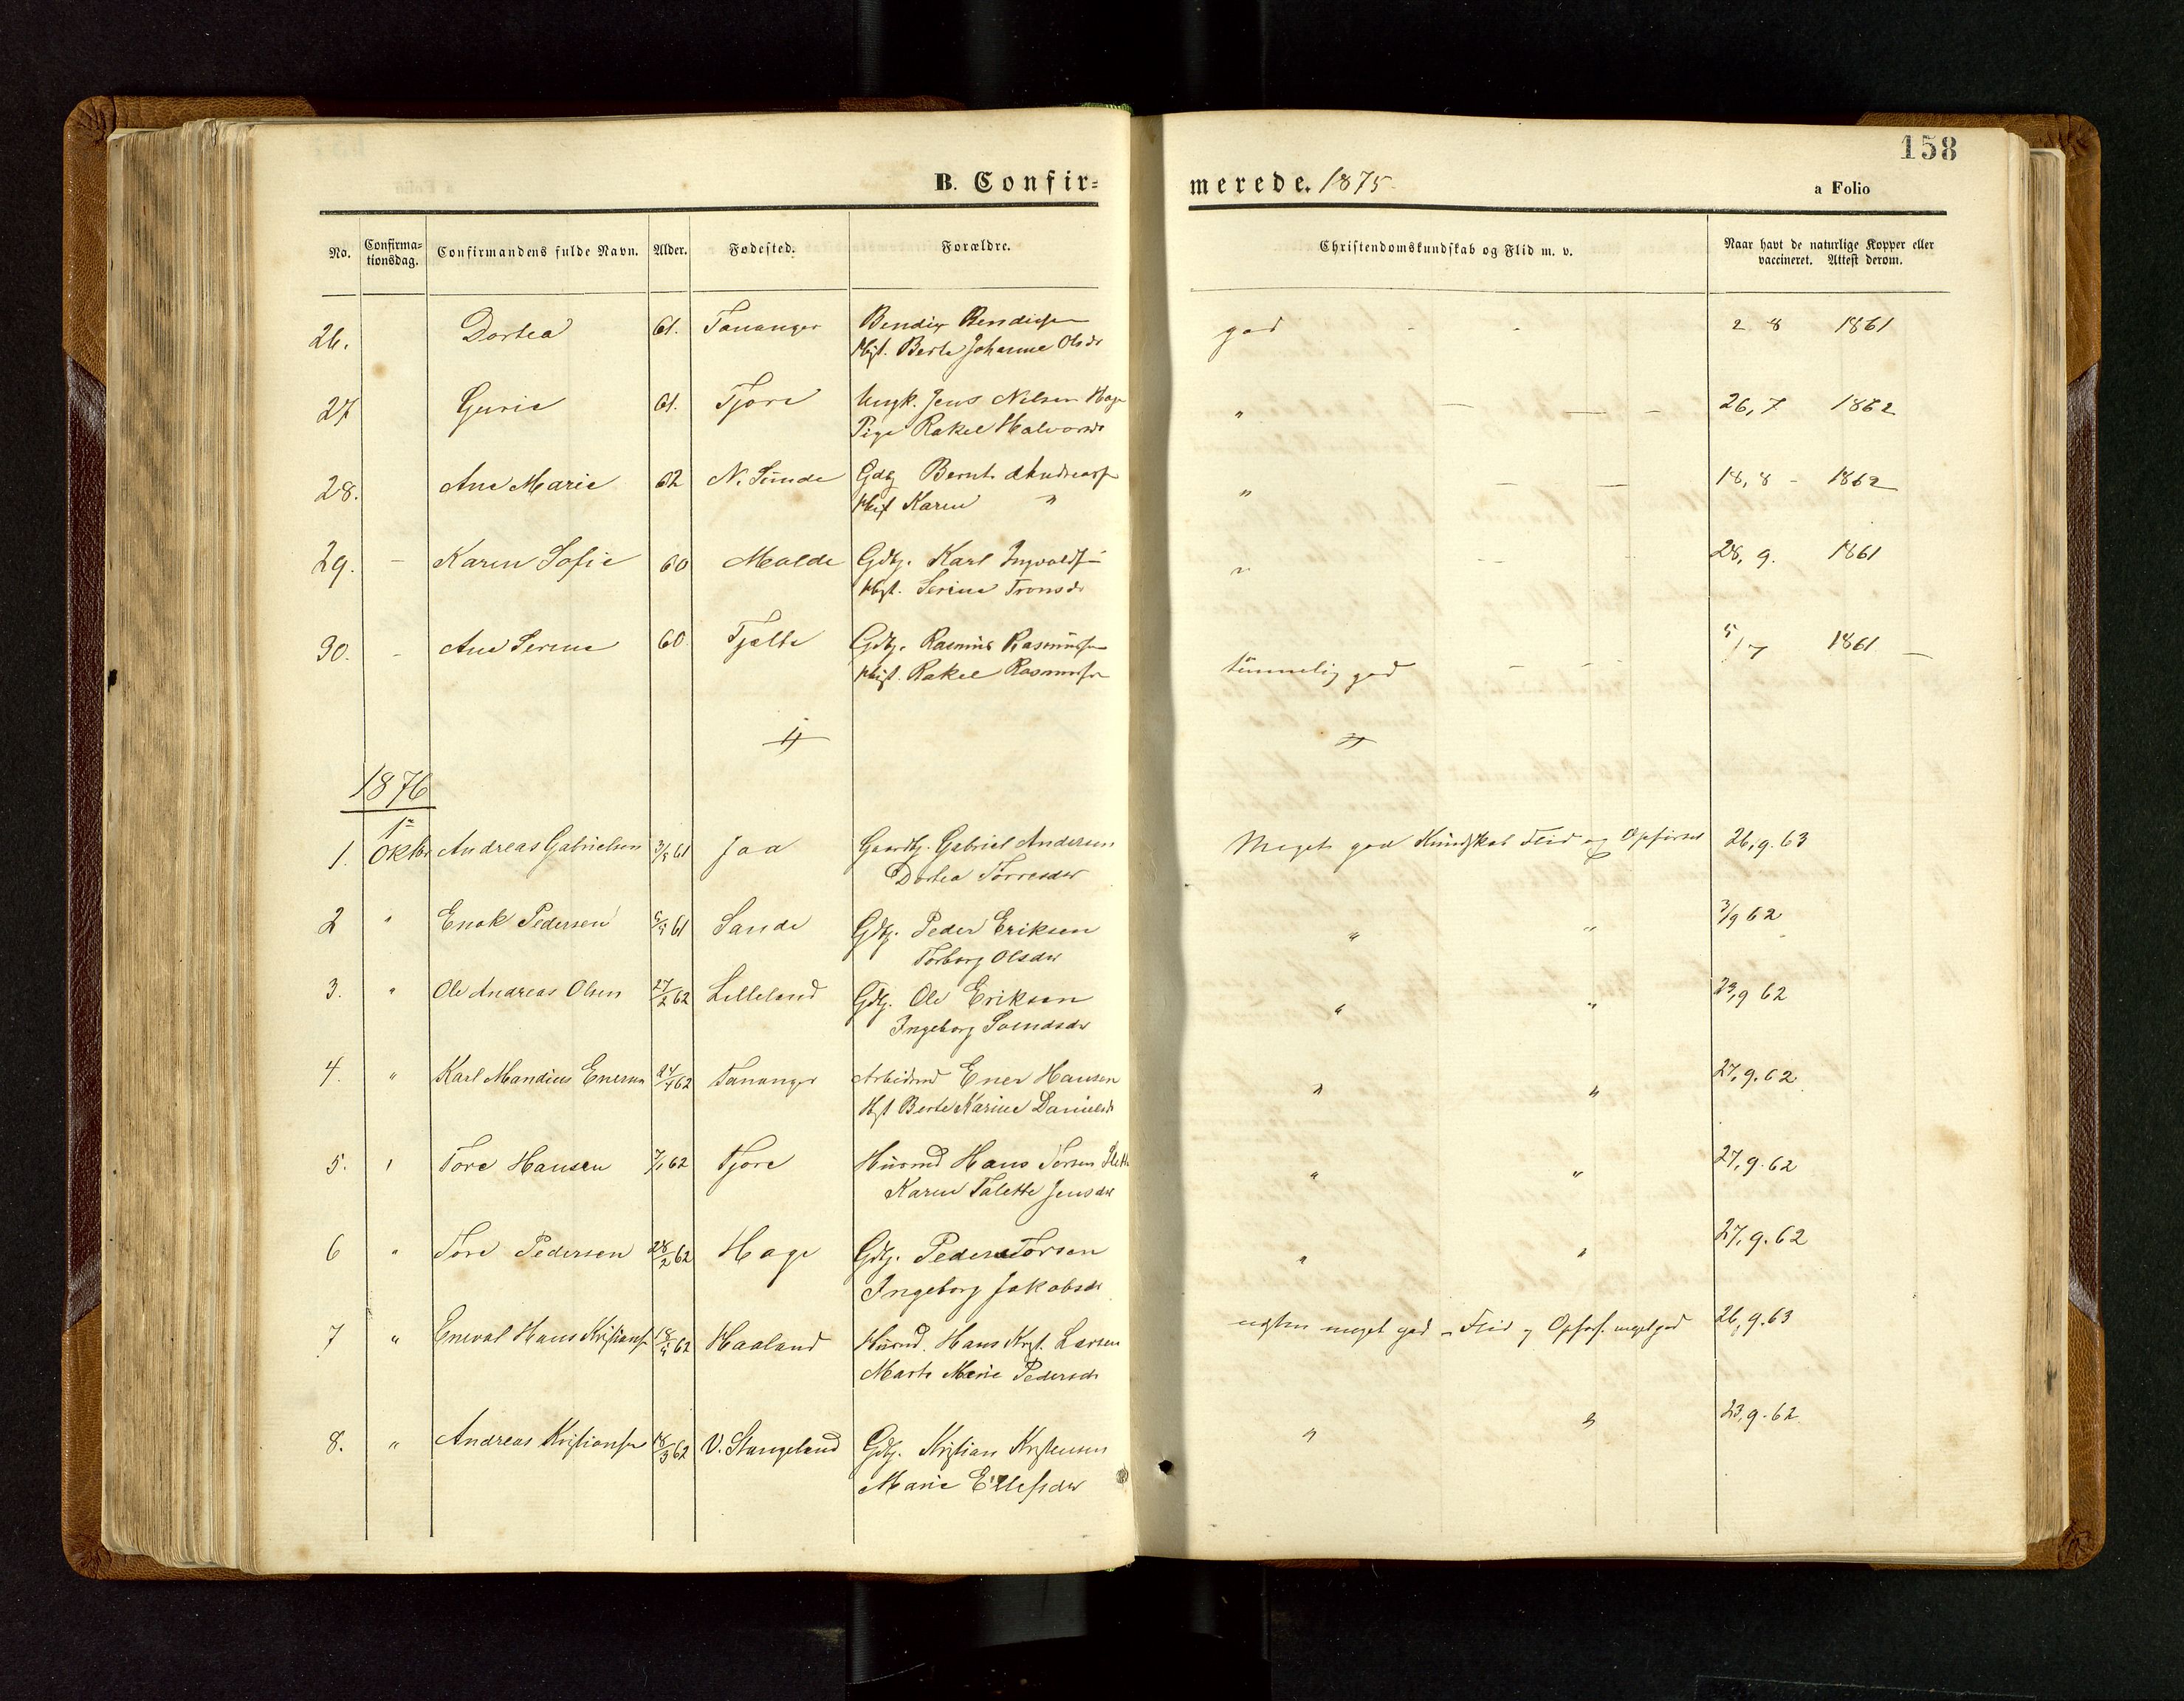 158
B. Confirmerede. 1875.
a Folio
No. Confirmationsdag. Confirmandens fulde Navn. Alder. Fødested. Forældre. Christendomskundskab og Flid m. v. Naar havt de naturlige Kopper eller vaccineret. Attest derom.
26. Dortea 61. Tananger Bendix Bendixsen god 2 8 1861
Hst. Berte Johanne Olsdr
27 Gurie 61. Tjora Ungk. Jens Nilsen Haga " 26, 7 1862
Pige Rakel Halvorsdr
28. Ane Marie 62 N. Sunde Gdbg Bernt Andreassen " 18, 8 - 1862
Hst Karen "
29. - Karen Sofie 60 Malde Gdbg. Karl Ingvaldsen " 28, 9. 1861
Hst. Serine Tronsdr
30. - Ane Serine 60 Tjelta Gdbg. Rasmus Rasmussen tæmmelig god 5/7 1861
Hst. Rakel Rasmussdr
1876
1. 1ste Oktbr Andreas Gabrielsen 3/5 61 Jaa Gaardbg. Gabriel Andersen Meget god Kundskab Flid og Opførsel 26, 9. 63
Dortea Torresdtr
2 " Enok Pedersen 5/5 61 Sande Gdbg. Peder Eriksen " " 3/9 62
Torborg Olsdtr
3. " Ole Andreas Olsen 27/2 62 Lilleland Gdbg. Ole Eriksen " " 23, 9 62
Ingeborg Svendsdtr
4. " Karl Mandius Enersen 24/4 62 Tananger Arbeidsmd Ener Hansen " " 27, 9. 62
Hst Berte Karine Danielsdr
5. " Tore Hansen 7/1 62 Tjora Husmd Hans Torsen " " 27, 9. 62
Karen Talette Jensdtr
6 " Tore Pedersen 28/2 62 Haga Gdbg. Peder Torsen " " 27, 9. 62
Ingeborg Jakobsdr
7 " Eneval Hans Kristiansen 18/5 62 Haaland Husmd. Hans Krist. Larsen næsten meget god - Flid og Opførs. meget god 26, 9. 63
Marta Marie Pedersdr
8. " Andreas Kristiansen 18/3 62 V. Stangeland Gdbg. Kristian Kristensen " " 23, 9. 62
Marie Ellefsdtr